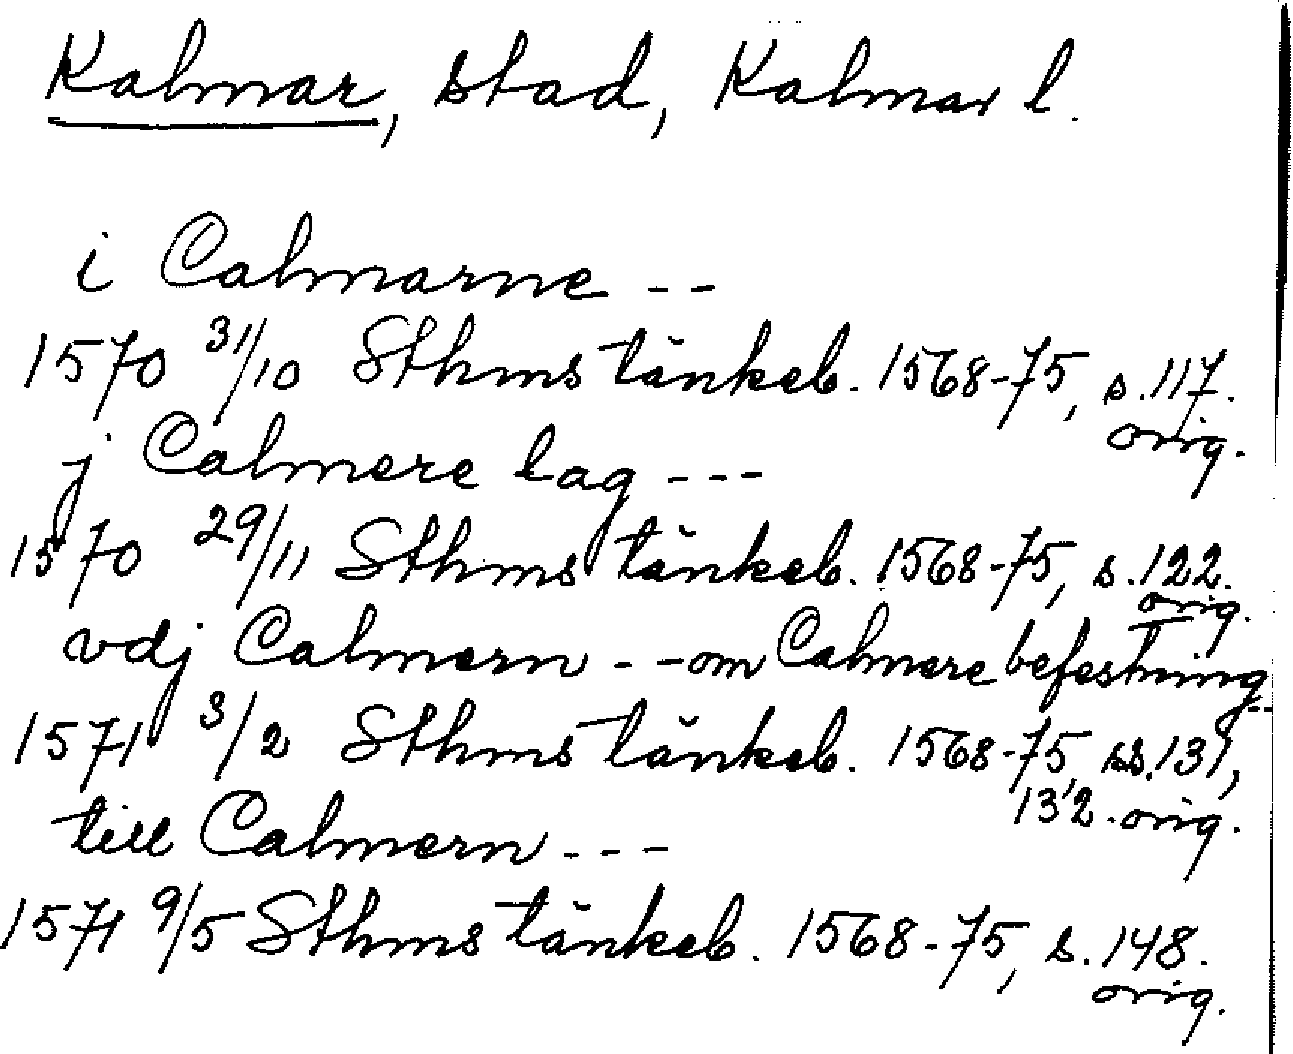 Kalmar, stad, Kalmar l.
i Calmarne - -
1570 31/10 Sthms tänkeb. 1568-75, s. 117.
orig.
j Calmere lag - - -
1570 29/11 Sthms tänkeb. 1568-75, s. 122.
orig.
vdj Calmern - - om Calmere befestning - -
1571 3/2 Sthms tänkeb. 1568-75, ss. 131,
132. orig.
till Calmern - - -
1571 9/5 Sthms tänkeb. 1568-75, s. 148.
orig.